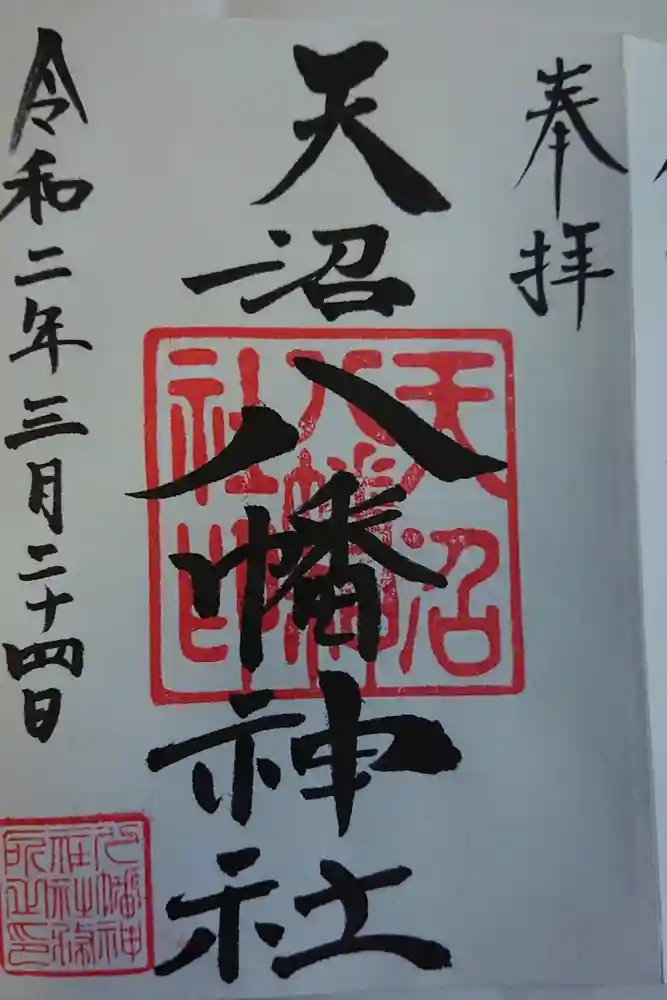 奉拝
天沼八幡神社
天沼八幡神社印
令和二年三月二十四日